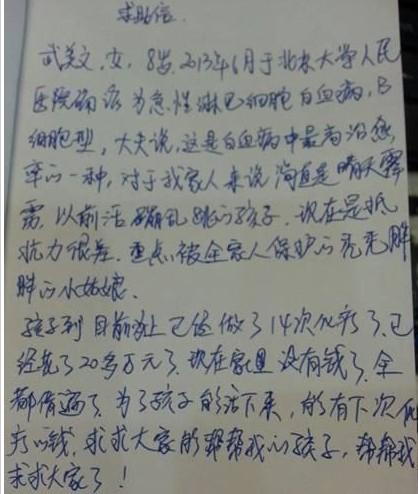 求助信
武美文,女,8岁,2013年6月于北京大学人民
医院确诊为急性淋巴细胞白血病,B
细胞型,大夫说,这是白血病中最高治愈
率的一种,对于我家人来说简直是晴天霹
雳,以前活蹦乱跳的孩子,现在是抵
抗力很差,重点被全家人保护的秃秃胖
胖的小姑娘。
孩子到目前为止已经做了14次化疗了,已
经花了20多万元了,现在家里没有钱了,全
都借遍了,为了孩子能活下来,能有下次化
疗的钱,求求大家能帮帮我的孩子,帮帮我
求求大家了!